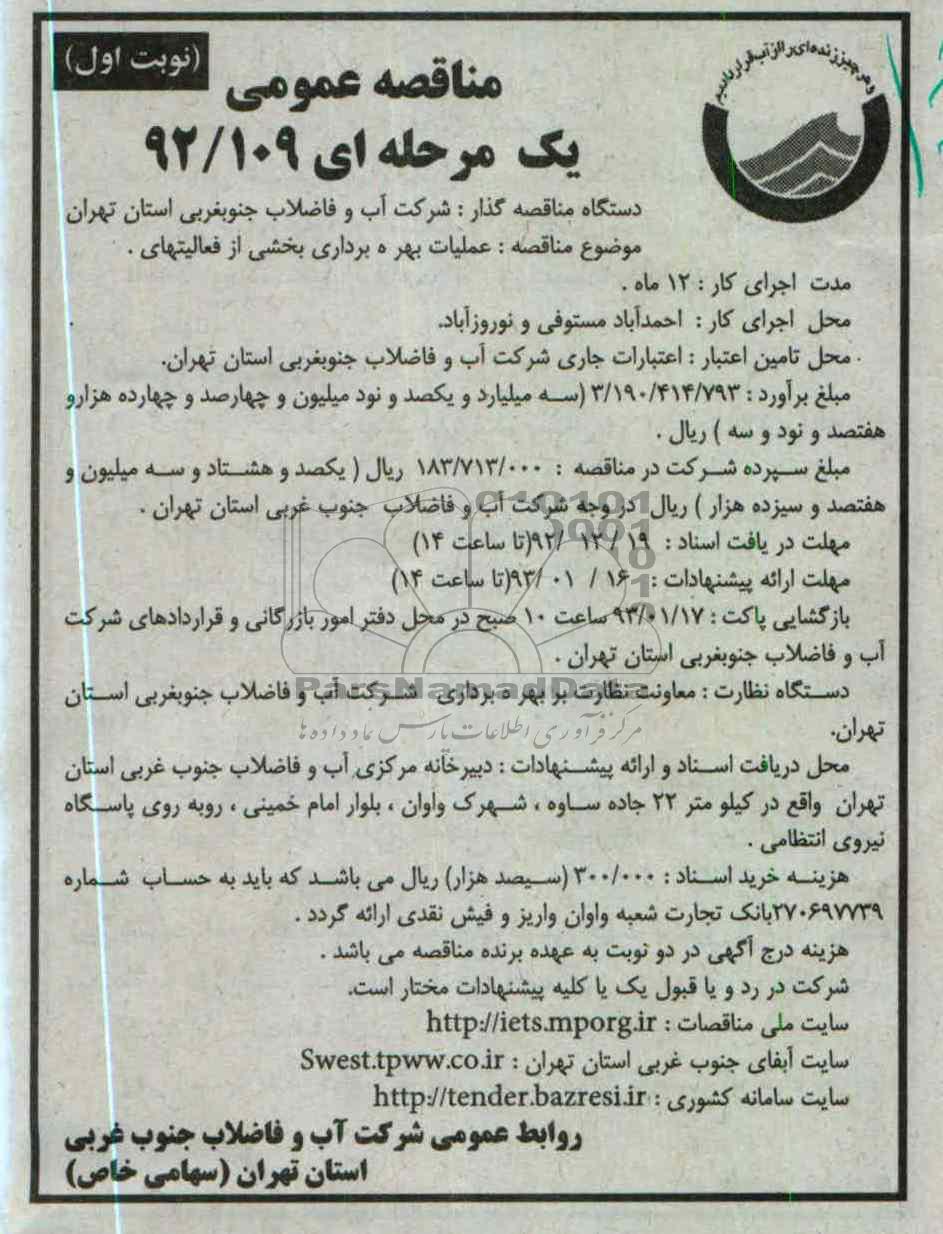 (نوبت اول)
و هر چیز زنده‌ای را از آب قرار دادیم
مناقصه عمومی
یک مرحله ای ۹۲/۱۰۹
دستگاه مناقصه گذار : شرکت آب و فاضلاب جنوبغربی استان تهران
موضوع مناقصه : عملیات بهر ه برداری بخشی از فعالیتهای .
مدت اجرای کار : ۱۲ ماه .
محل اجرای کار : احمدآباد مستوفی و نوروزآباد.
محل تامین اعتبار : اعتبارات جاری شرکت آب و فاضلاب جنوبغربی استان تهران.
مبلغ برآورد : ۳/۱۹۰/۴۱۴/۷۹۳ (سه میلیارد و یکصد و نود میلیون و چهارصد و چهارده هزارو
هفتصد و نود و سه ) ریال .
مبلغ سپرده شرکت در مناقصه : ۱۸۳/۷۱۳/۰۰۰ ریال ( یکصد و هشتاد و سه میلیون و
هفتصد و سیزده هزار ) ریال در وجه شرکت آب و فاضلاب جنوب غربی استان تهران .
مهلت در یافت اسناد : ۱۹ / ۱۲ /۹۲(تا ساعت ۱۴)
مهلت ارائه پیشنهادات : ۱۶ / ۰۱ /۹۳(تا ساعت ۱۴)
بازگشایی پاکت : ۹۳/۰۱/۱۷ ساعت ۱۰ صبح در محل دفتر امور بازرگانی و قراردادهای شرکت
آب و فاضلاب جنوبغربی استان تهران .
دستگاه نظارت : معاونت نظارت بر بهر ه برداری شرکت آب و فاضلاب جنوبغربی استان
تهران.
ParsNamadData
مرکز فرآوری اطلاعات پارس نماد داده ها
محل دریافت اسناد و ارائه پیشنهادات : دبیرخانه مرکزی آب و فاضلاب جنوب غربی استان
تهران واقع در کیلو متر ۲۲ جاده ساوه ، شهرک واوان ، بلوار امام خمینی ، روبه روی پاسگاه
نیروی انتظامی .
هزینه خرید اسناد : ۳۰۰/۰۰۰ (سیصد هزار) ریال می باشد که باید به حساب شماره
۲۷۰۶۹۷۷۳۹بانک تجارت شعبه واوان واریز و فیش نقدی ارائه گردد .
هزینه درج آگهی در دو نوبت به عهده برنده مناقصه می باشد .
شرکت در رد و یا قبول یک یا کلیه پیشنهادات مختار است.
سایت ملی مناقصات : http://iets.mporg.ir
سایت آبفای جنوب غربی استان تهران : Swest.tpww.co.ir
سایت سامانه کشوری : http://tender.bazresi.ir
روابط عمومی شرکت آب و فاضلاب جنوب غربی
استان تهران (سهامی خاص)